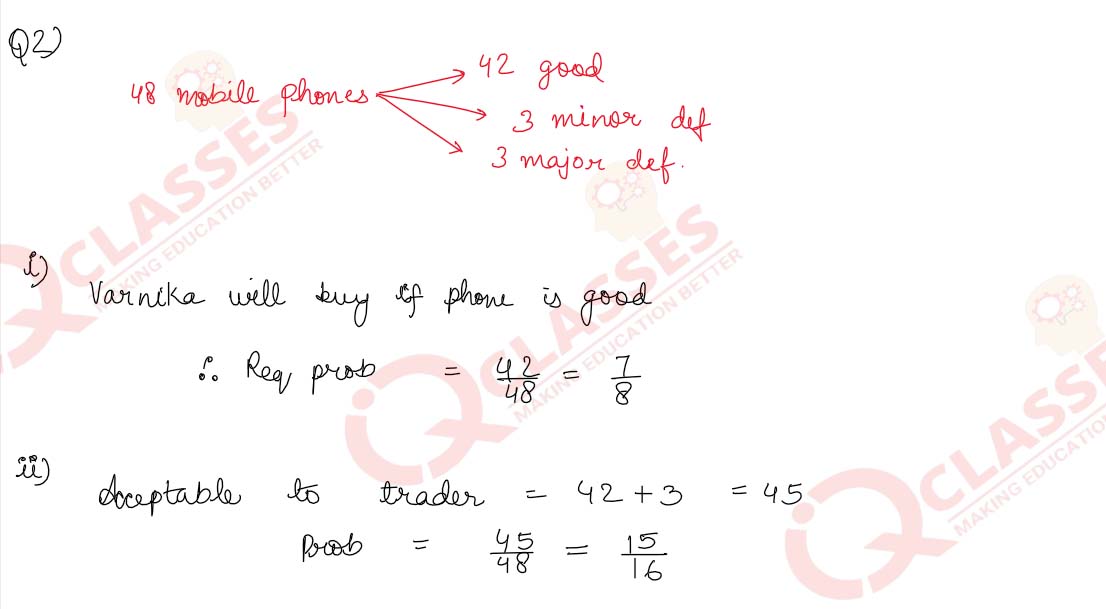 Q2)
48 mobile phones
42 good
3 minor def
3 major def.
i)
Varnika will buy if phone is good
∴ Req prob = 42/48 = 7/8
ii)
Acceptable to trader = 42 + 3 = 45
Prob = 45/48 = 15/16
iQ CLASSES
MAKING EDUCATION BETTER
iQ CLASSES
MAKING EDUCATION BETTER
iQ CLASSES
MAKING EDUCATIO